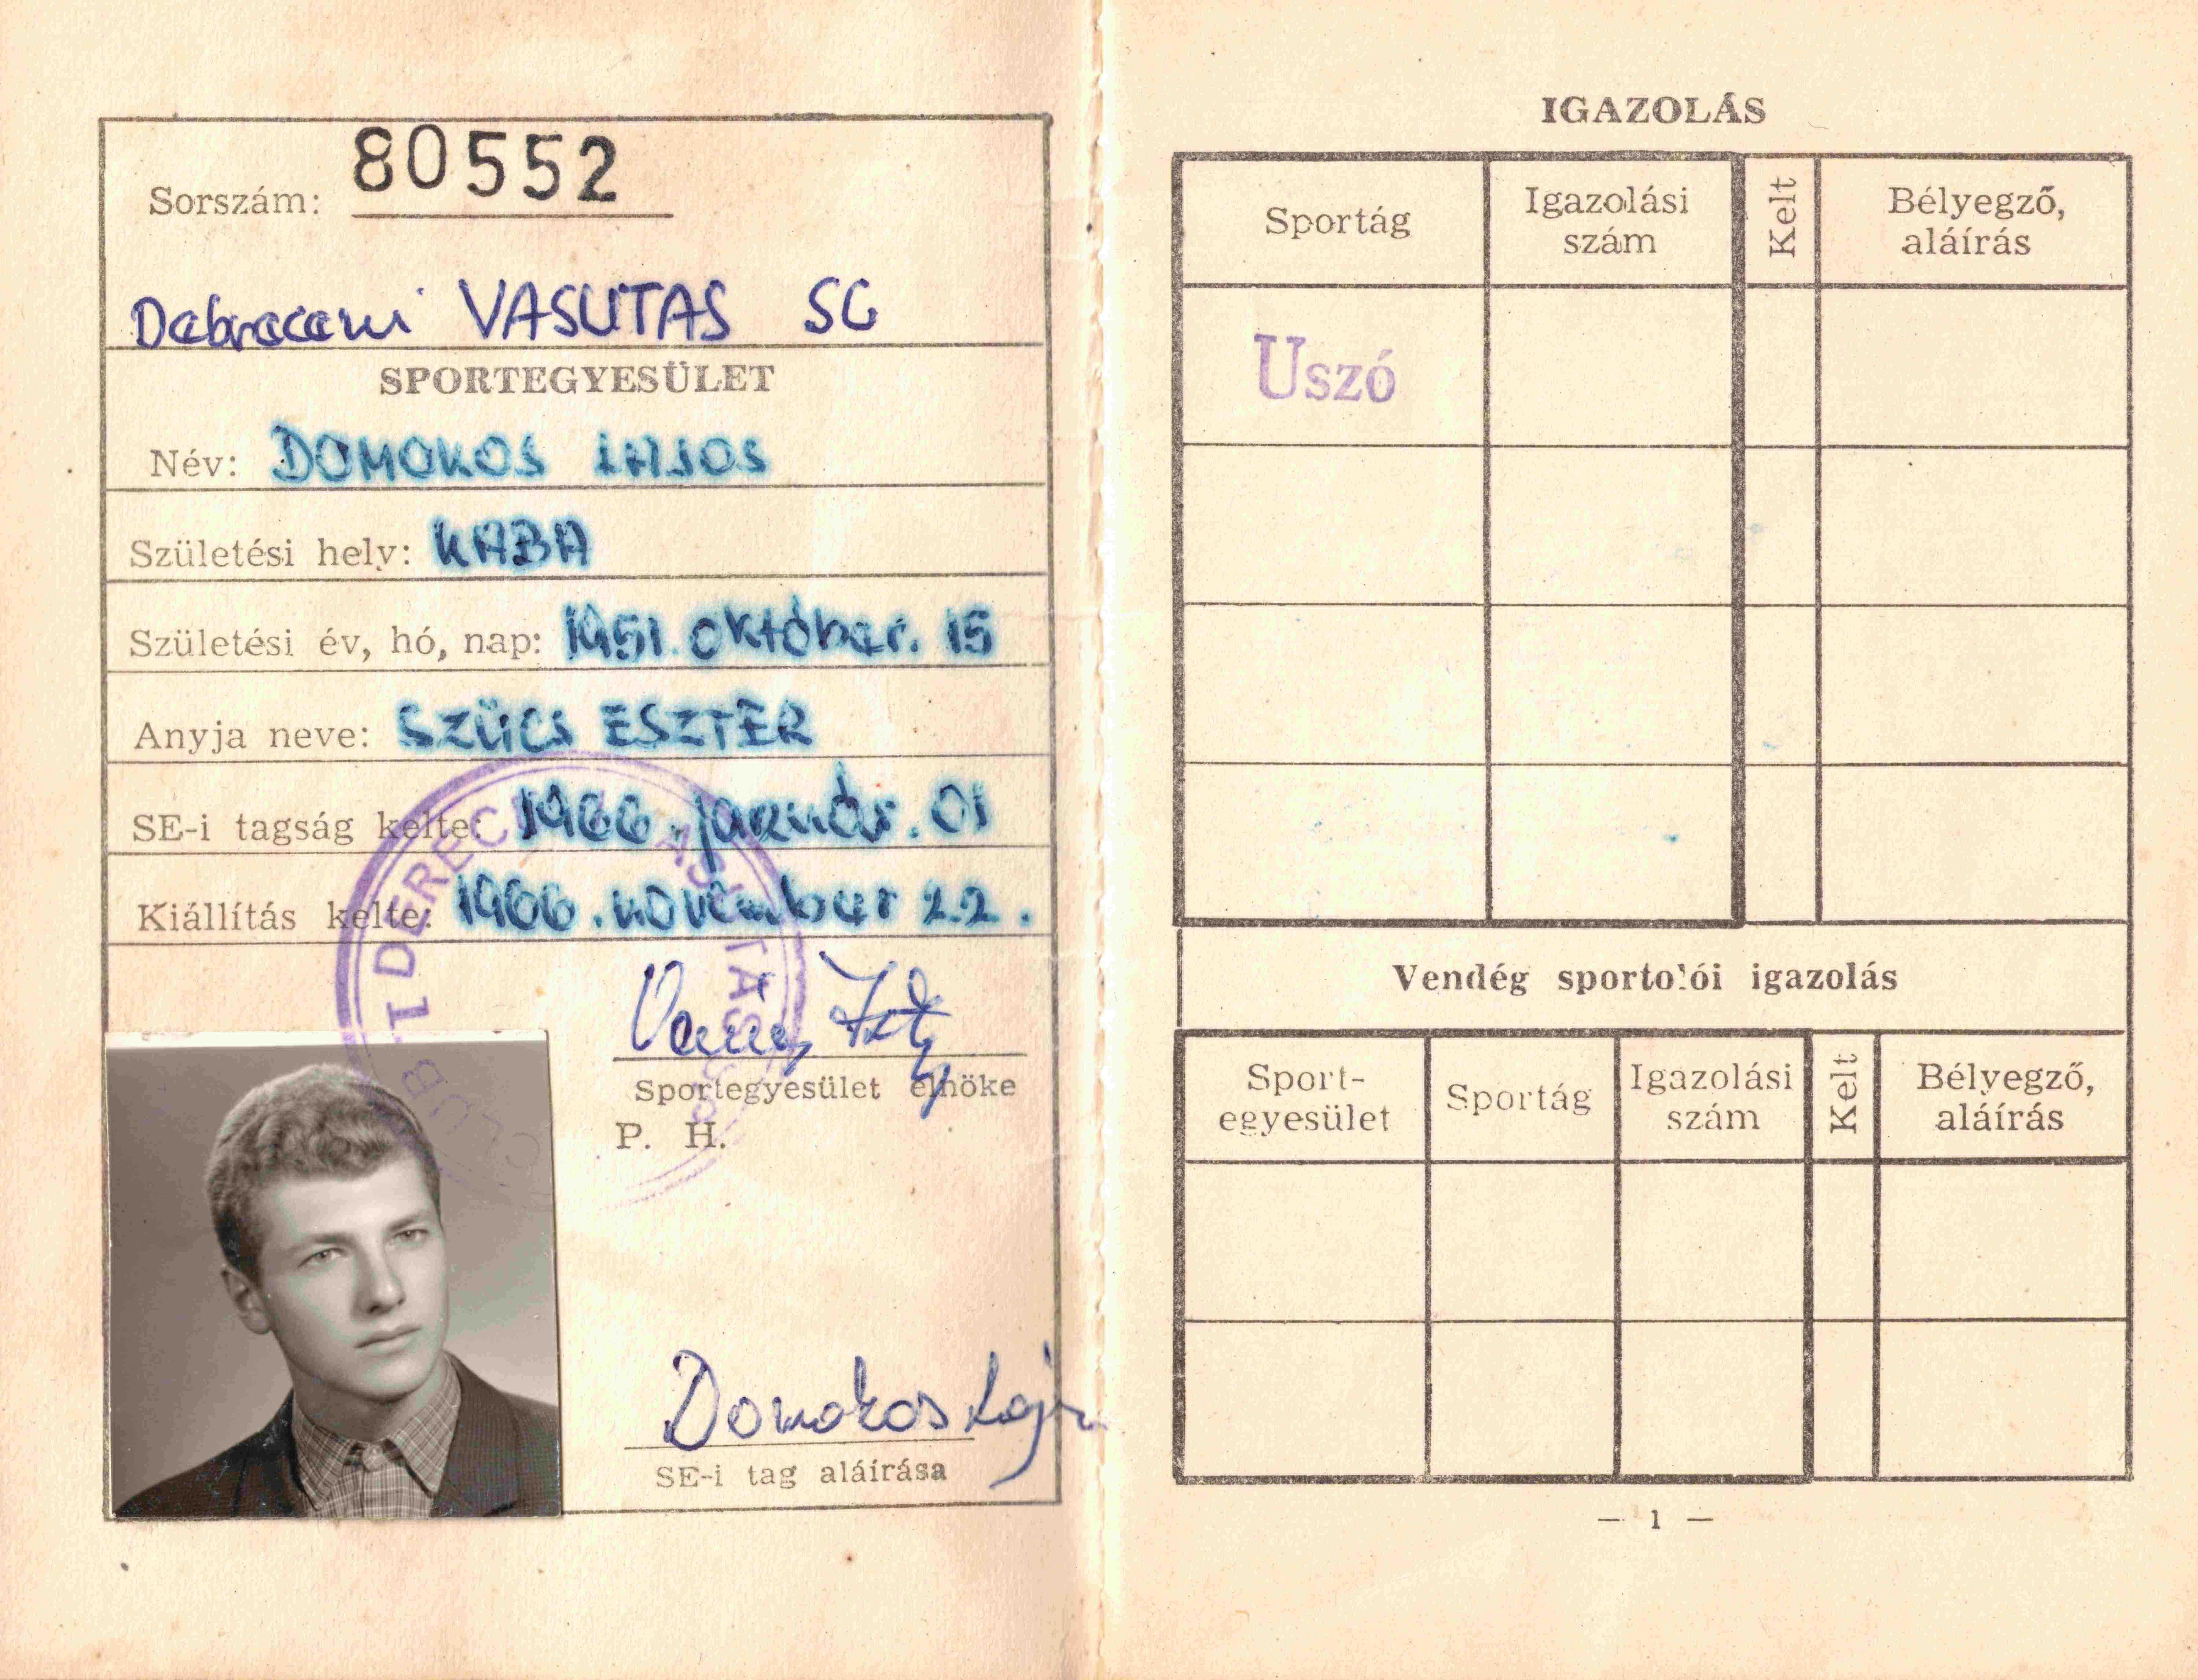 Sorszám: 80552
Debreceni VASUTAS SC
SPORTEGYESÜLET
Név: DOMOKOS LAJOS
Születési hely: KABA
Születési év, hó, nap: 1951. október. 15
Anyja neve: SZÜCS ESZTER
SE-i tagság kelte: 1966. január. 01
Kiállítás kelte: 1966. november 22.
Sportegyesület elnöke
P. H.
Domokos Lajos
SE-i tag aláírása
IGAZOLÁS
Sportág
Igazolási
szám
Kelt
Bélyegző,
aláírás
Uszó
Vendég sportolói igazolás
Sport-
egyesület
Sportág
Igazolási
szám
Kelt
Bélyegző,
aláírás
— 1 —